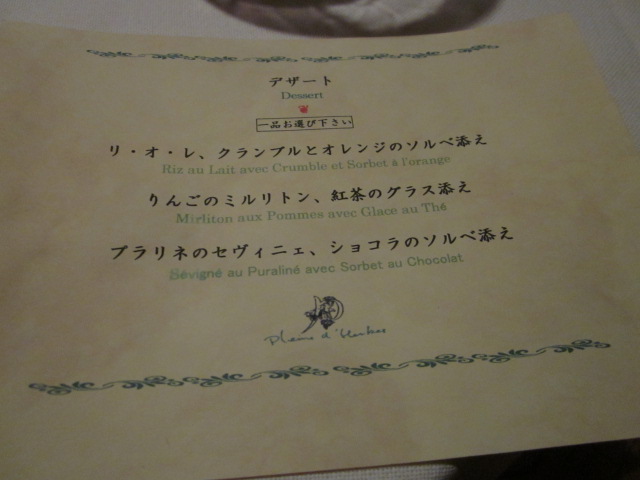 デザート
Dessert
一品お選び下さい
リ・オ・レ、クランブルとオレンジのソルベ添え
Riz au Lait avec Crumble et Sorbet à l'orange
りんごのミルリトン、紅茶のグラス添え
Mirliton aux Pommes avec Glace au Thé
プラリネのセヴィニェ、ショコラのソルベ添え
Sévigné au Puraliné avec Sorbet au Chocolat